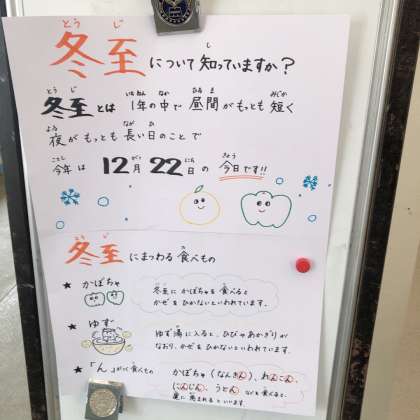 冬至について知っていますか?
冬至とは 1年の中で昼間がもっとも短く
夜がもっとも長い日のことで
今年は 12月22日の 今日です!!
冬至にまつわる食べもの
★ かぼちゃ
冬至にかぼちゃを食べると
かぜをひかないといわれています。
★ ゆず
ゆず湯に入ると、ひびやあかぎりが
なおり、かぜをひかないといわれています。
★「ん」がつく食べもの
かぼちゃ(なんきん)、れんこん、
にんじん、うどん などを食べると、
運に恵まれるといいます。